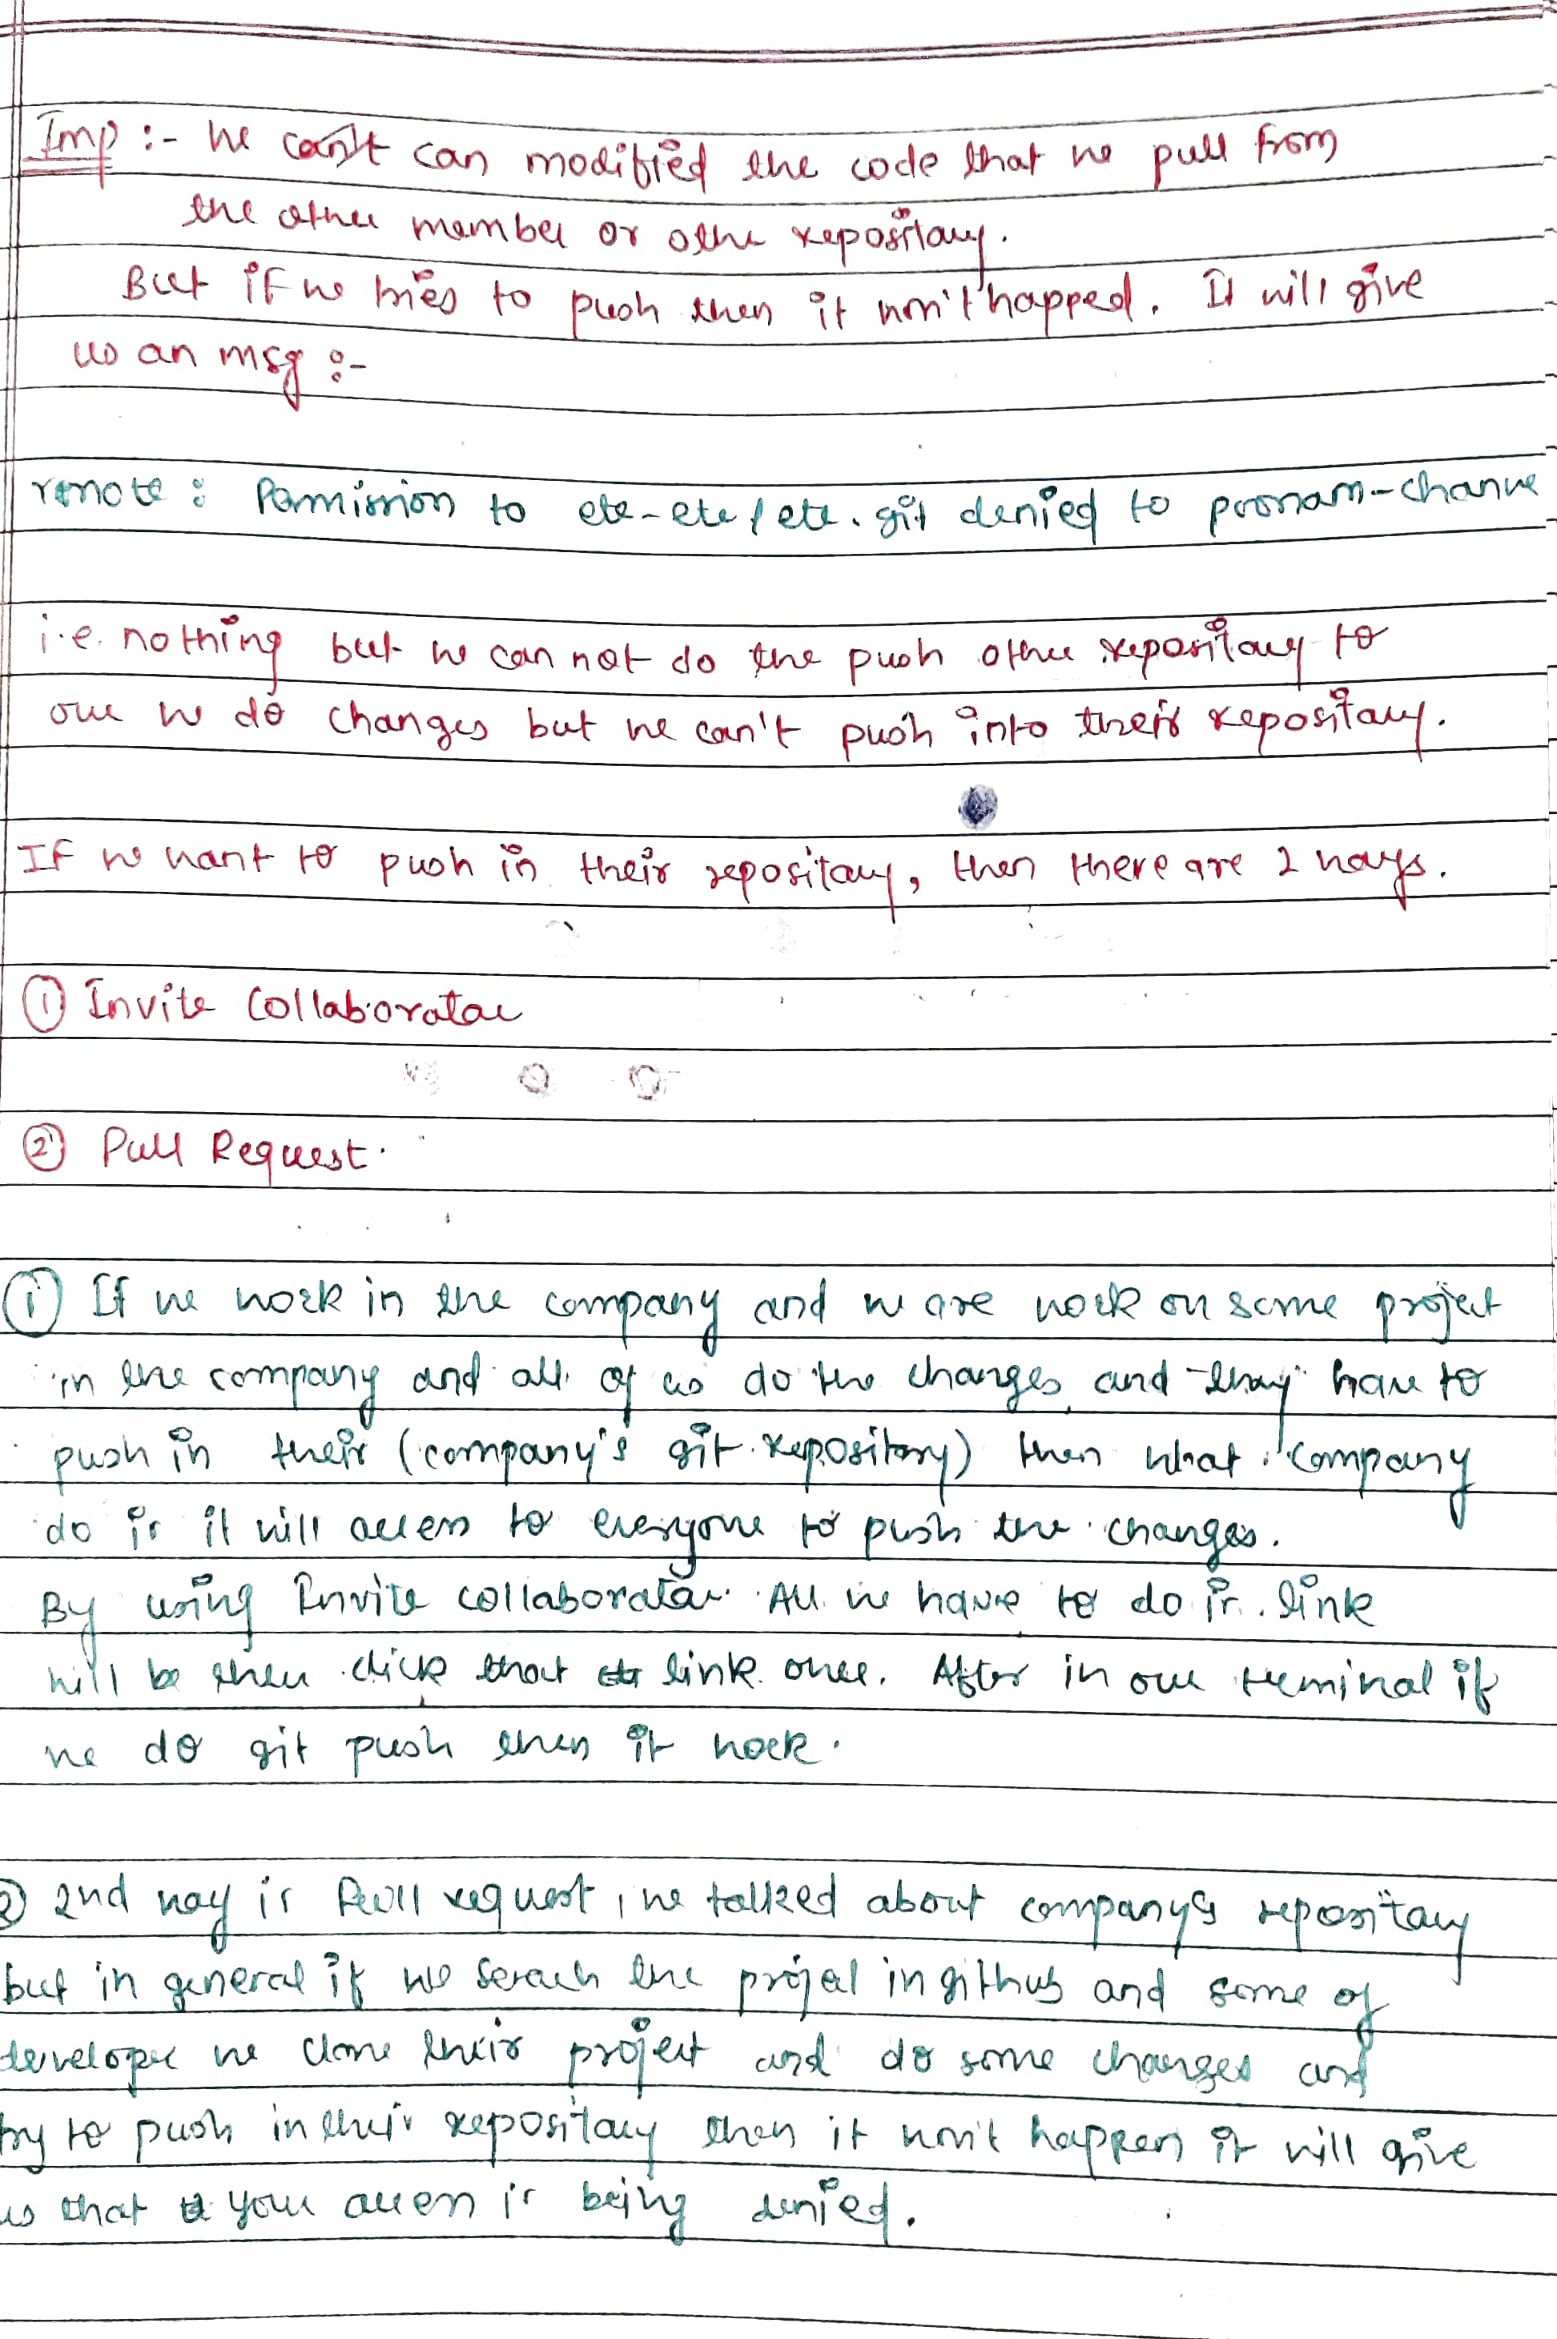 Imp :- we can't can modified the code that we pull from
the other member or other repositary.
But if we tries to push then it won't happed. It will give
us an msg :-
remote : Permission to etc-etc/etc.git denied to poonam-chanve
i.e. nothing but we can not do the push other repositary to
our we do changes but we can't push into their repositary.
If we want to push in their repositary, then there are 2 ways.
① Invite Collaborator
② Pull Request.
① If we work in the company and we are work on some project
in the company and all of us do the changes and they have to
push in their (company's git repository) then what company
do is it will access to everyone to push the changes.
By using Invite collaborator. All we have to do is link
will be then click that link once. After in our terminal if
we do git push then it work.
② 2nd way is Pull request, we talked about company's repositary
but in general if we serach the projet in github and some of
developer we clone their project and do some changes and
try to push in their repositary then it won't happen it will give
us that your access is being denied.